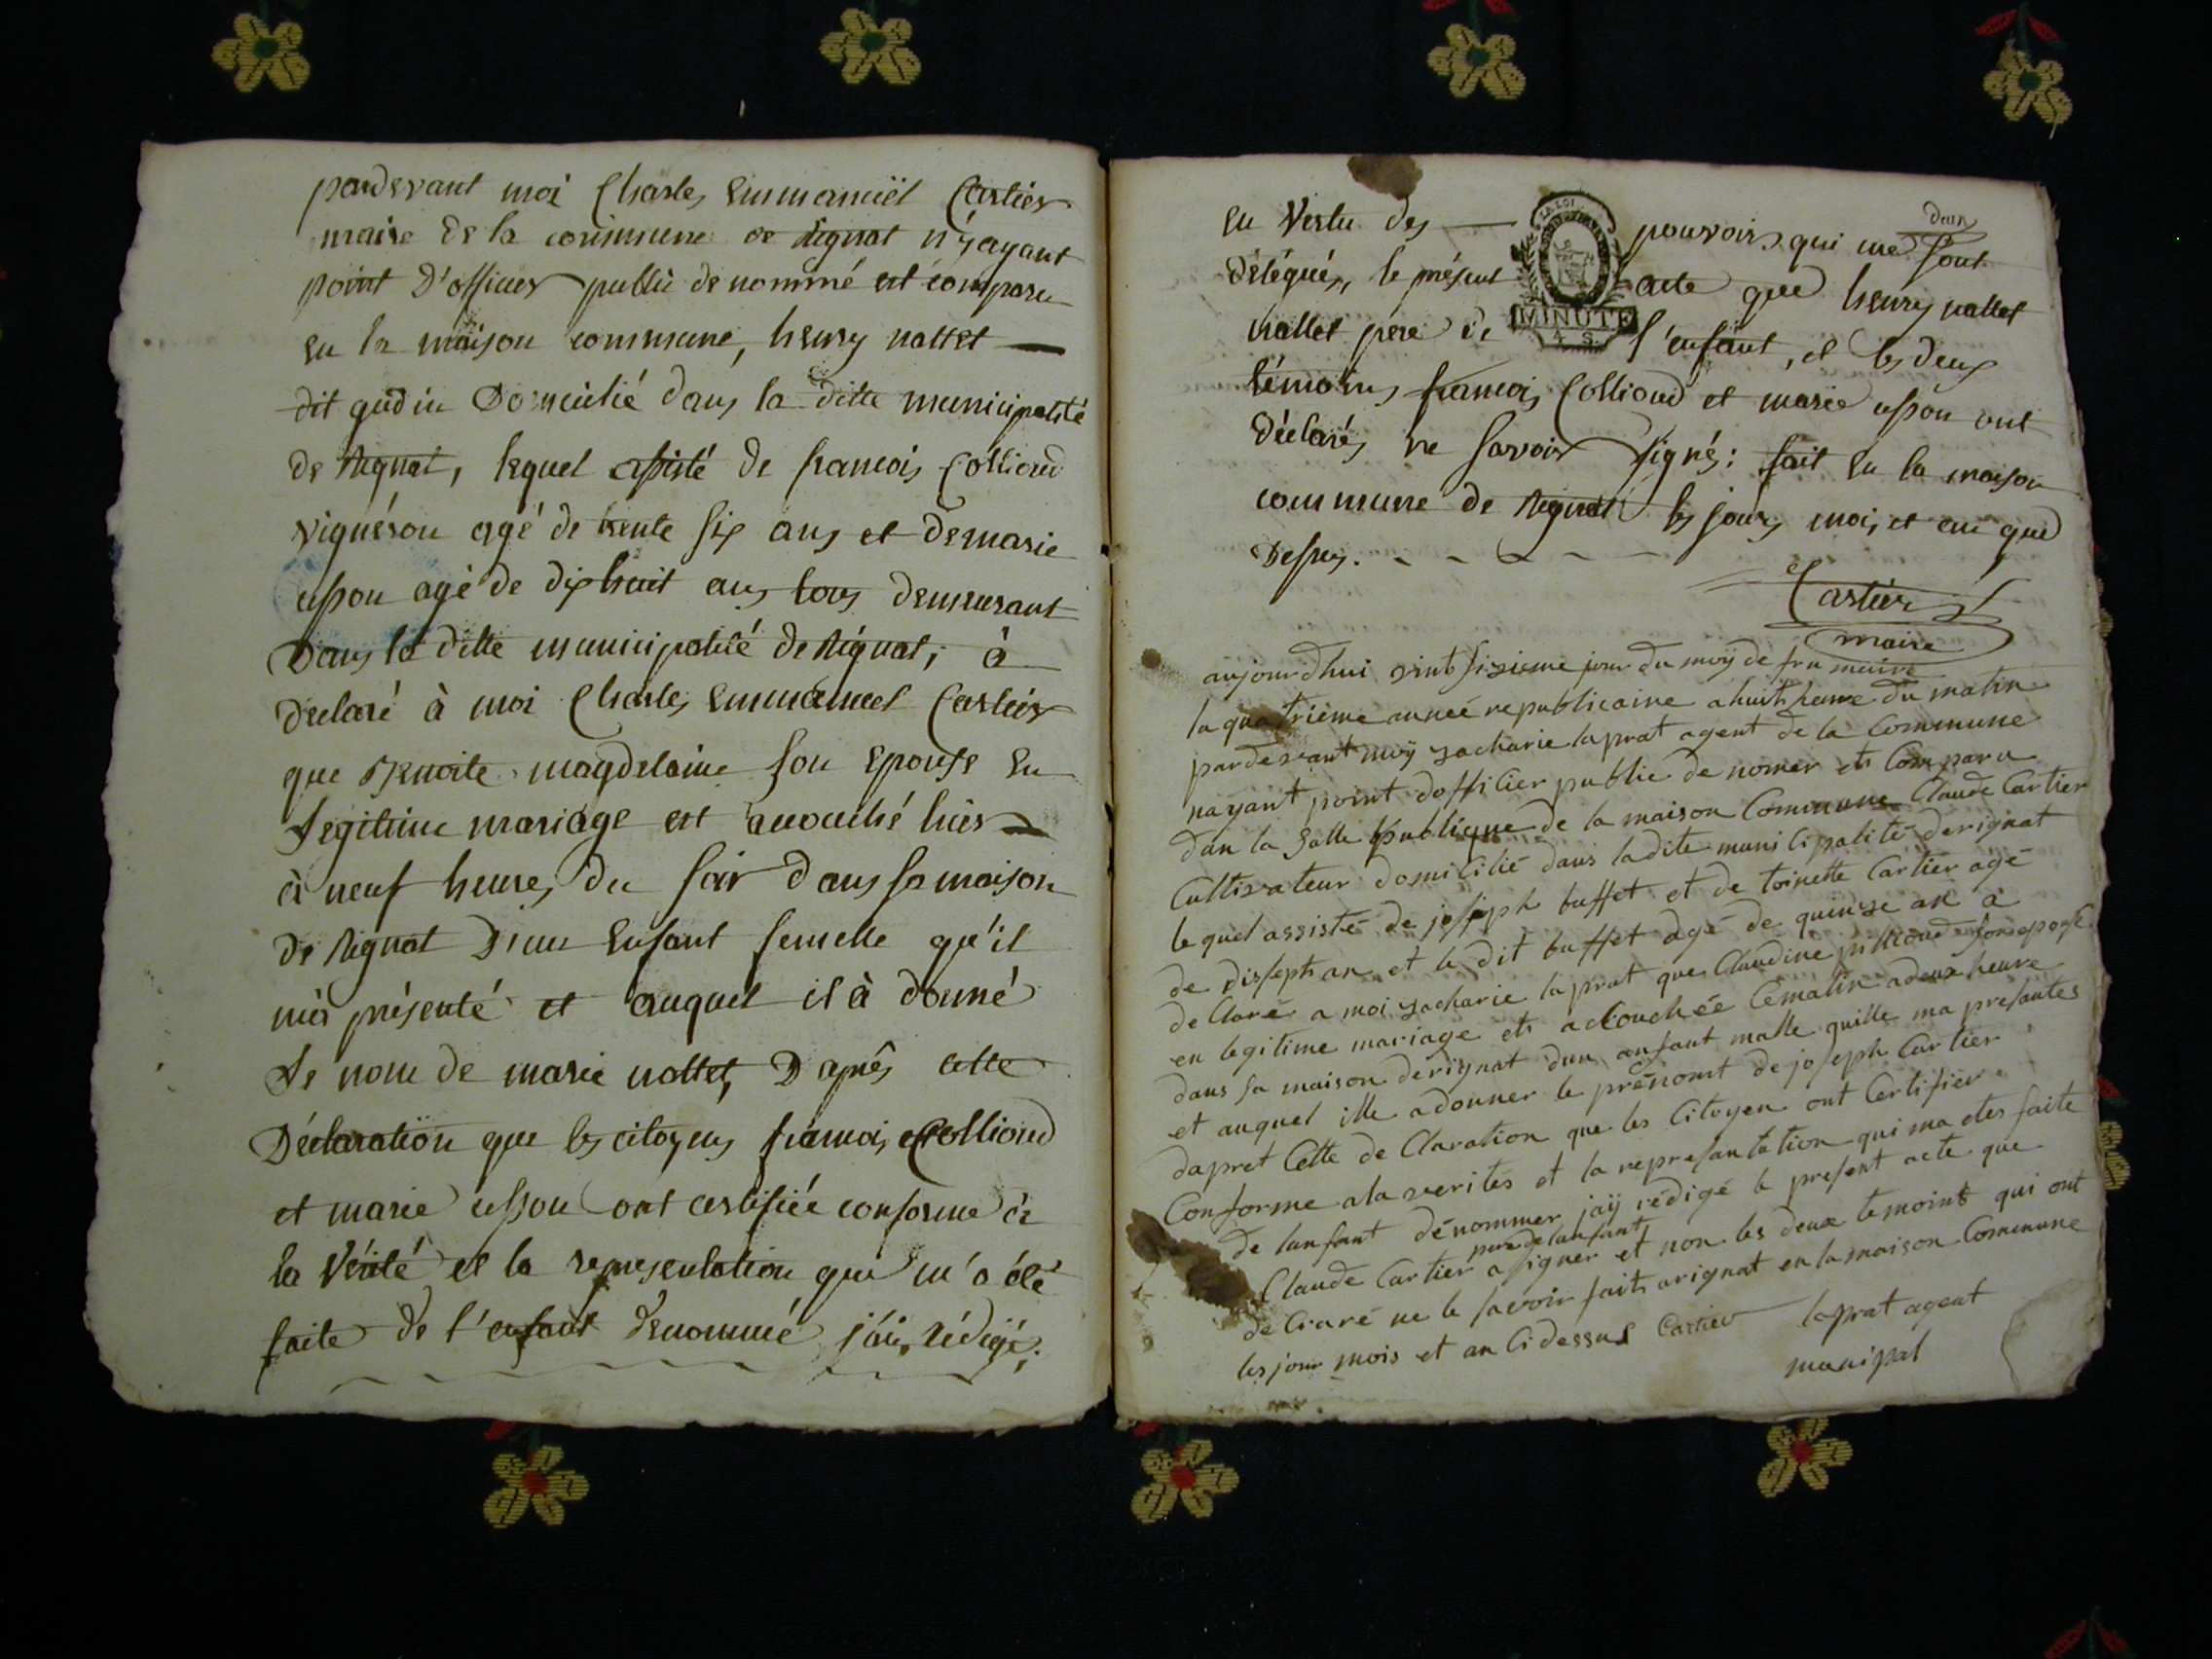 pardevant moi Charles Emmanuël Cartier
maire de la commune de Rignat n'y ayant
point d'officier public de nommé est comparu
en la maison commune, henry nallet
dit gudin Domicilié dans la ditte municipalité
de Rignat, lequel assisté de francois Collioud
vigneron agé de trente six ans et de marie
usson agé de dix huit ans tous demeurant
Dans la ditte municipalité de Rignat, à
déclaré à moi Charles Emmanuel Cartier
que Benoite magdelaine son Epouse En
Legitime mariage est accouché hier
à neuf heures du soir dans sa maison
de Rignat D'un Enfant femelle qu'il
m'à présenté et auquel il à donné
Le nom de marie nallet, D'après cette
Déclaration que les citoyens francois Collioud
et marie usson ont certifiée conforme à
la Vérité et la representation que m'a été
faite de l'enfant denommé j'ai, rédigé,
En Vertu des pouvoirs qui me sont
délégués, le présent acte que henry nallet
nallet père de l'enfant, et les deux
témoins francois Collioud et marie usson ont
déclarés ne savoir signés: fait En la maison
commune de Rignat les jours, mois, et an que
Dessus.
LA LOI
MINUTE
4 S.
Cartier
maire
aujourdhui vint sizieme jour du moÿ de frumaire
la quatrième anneé republicaine a huit heure du matin
pardevant moÿ zacharie laprat agent de la Commune
nayant point dofficier public de nomer et Comparu
dan la Salle publique de la maison Commune Claude Cartier
Cultivateur domicilié dans ladite municipalité derignat
lequel assisté de joseph buffet et de toinette Cartier agé
de disseptan et le dit buffet agé de quinze an a
de Claré a moi zacharie laprat que Claudine pillioud son epose
en legitime mariage et accouchée Cematin adeux heure
dans sa maison derignat dun anfant malle quille ma presantes
et auquel ille adonner le prénomt de joseph Cartier
dapret Cette de Claration que les Citoyen ont Certifier
Conforme ala verites et la represantation qui ma etes faite
de lanfant dénommer jaÿ rédigé le present acte que
pere de lanfant
Claude Cartier a signer et non les deux temoint qui ont
de Claré ne le savoir fait arignat en la maison Commune
les jour mois et an Cidessus Cartier laprat agent
municipal